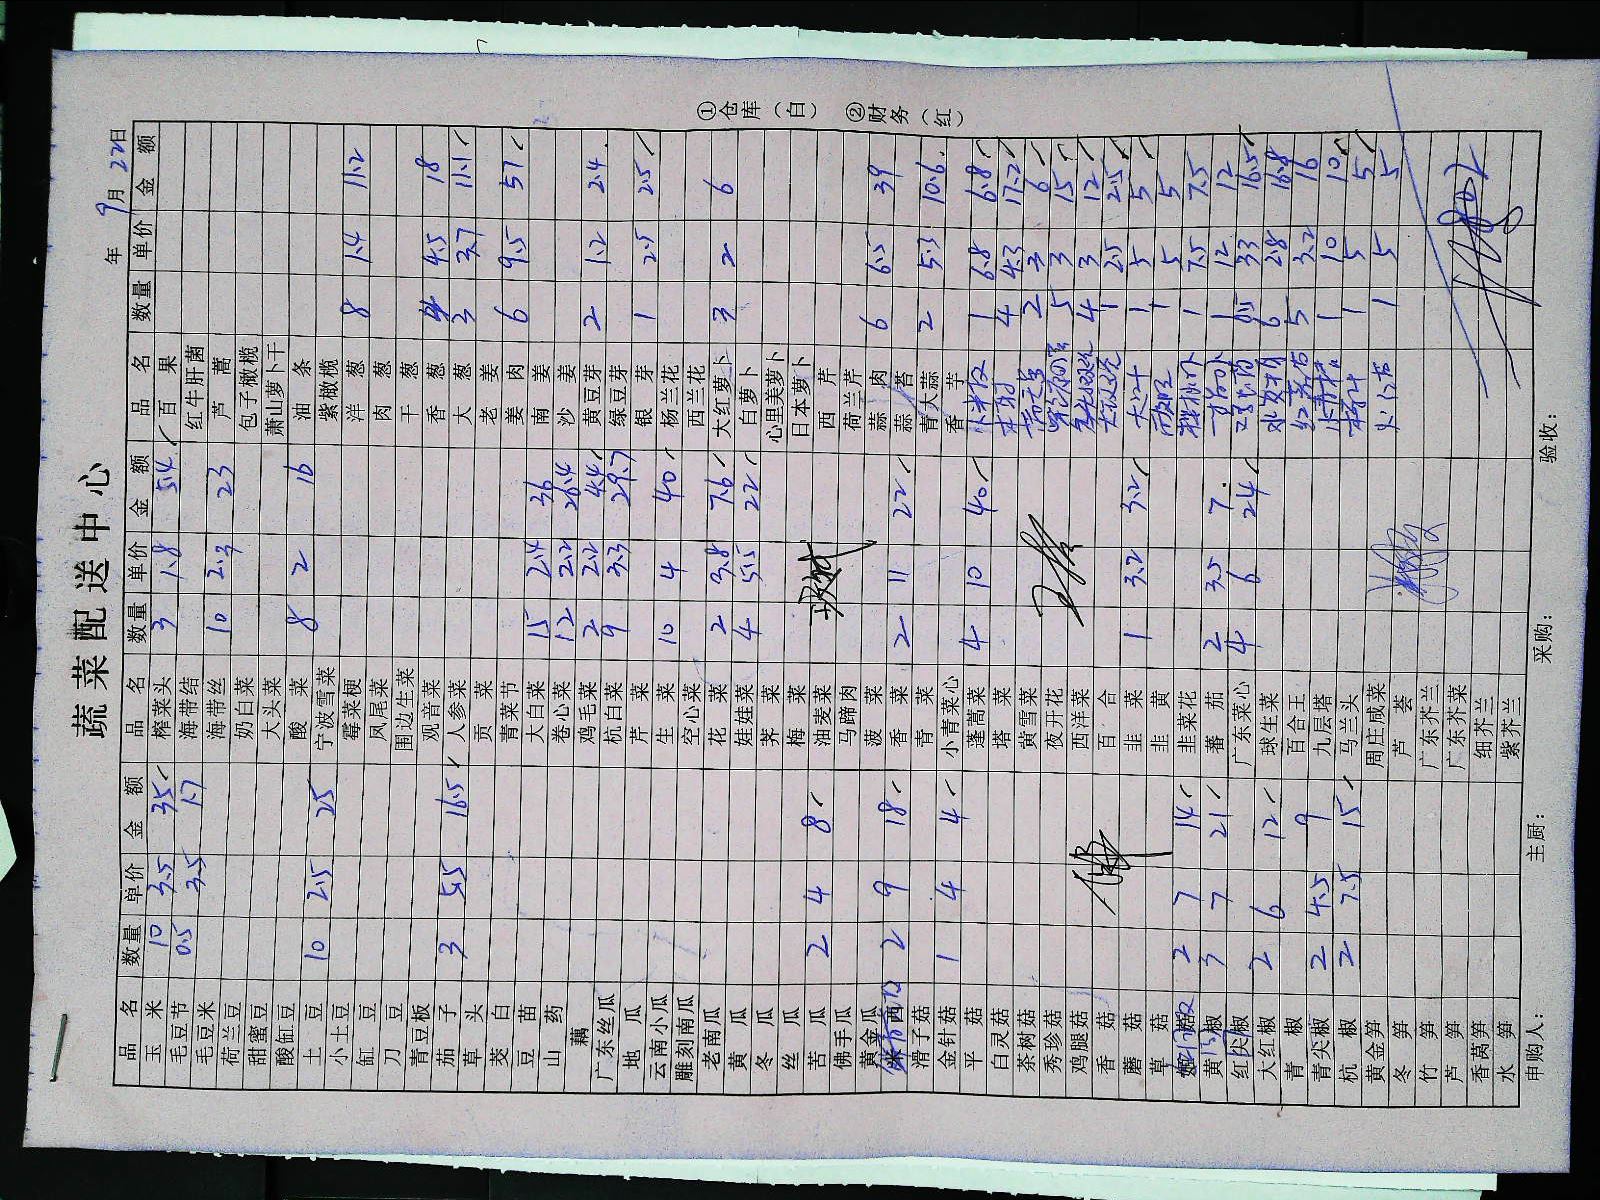 蔬菜配送中心
年 9月 22日
品名 数量 单价 金额 品名 数量 单价 金额 品名 数量 单价 金额
玉米 10 3.5 35 榨菜头 3 1.8 5.4 百果
毛豆节 0.5 3.5 1.7 海带结 红牛肝菌
毛豆米 海带丝 10 2.3 23 芦蒿
荷兰豆 奶白菜 包子橄榄
甜蜜豆 大头菜 萧山萝卜干
酸缸豆 酸菜 8 2 16 油条
土豆 10 2.5 25 宁波雪菜 紫橄榄
小土豆 霉菜梗 洋葱 8 1.4 11.2
缸豆 凤尾菜 肉葱
刀豆 围边生菜 干葱
青豆板 观音菜 香葱 4 4.5 18
茄子 3 5.5 16.5 人参菜 大葱 3 3.7 11.1
草头 贡菜 老姜
茭白 青菜节 姜肉 6 9.5 57
豆苗 大白菜 15 2.4 36 南姜
山药 卷心菜 12 2.2 26.4 沙姜
藕 鸡毛菜 2 2.2 4.4 黄豆芽 2 1.2 2.4
广东丝瓜 杭白菜 9 3.3 29.7 绿豆芽
地瓜 芹菜 银芽 1 2.5 2.5
云南小瓜 生菜 10 4 40 杨兰花
雕刻南瓜 空心菜 西兰花
老南瓜 花菜 2 3.8 7.6 大红萝卜 3 2 6
黄瓜 娃娃菜 4 5.5 22 白萝卜
冬瓜 荠菜 心里美萝卜
丝瓜 梅菜 日本萝卜
苦瓜 2 4 8 油麦菜 西芹
佛手瓜 马蹄肉 荷兰芹
黄金瓜 菠菜 蒜肉 6 6.5 39
2 9 18 香菜 2 11 22 蒜苔
滑子菇 青菜 青大蒜 2 5.3 10.6
金针菇 1 4 4 小青菜心 香芋
平菇 蓬蒿菜 4 10 40 1 6.8 6.8
白灵菇 塔菜 4 4.3 17.2
茶树菇 黄雪菜 2 3 6
秀珍菇 夜开花 5 3 15
鸡腿菇 西洋菜 4 3 12
香菇 百合 1 2.5 2.5
蘑菇 韭菜 1 3.2 3.2 1 5 5
草菇 韭黄 1 5 5
2 7 14 韭菜花 1 7.5 7.5
黄尖椒 3 7 21 番茄 2 3.5 7 1 12 12
红尖椒 广东菜心 4 6 24 0.5 33 16.5
大红椒 2 6 12 球生菜 6 2.8 16.8
青椒 百合王 5 3.2 16
青尖椒 2 4.5 9 九层塔 1 10 10
杭椒 2 7.5 15 马兰头 1 5 5
黄金笋 周庄咸菜 1 5 5
冬笋 芦荟
竹笋 广东芥兰
芦笋 广东芥菜
香莴笋 细芥兰
水笋 紫芥兰
申购人： 主厨： 采购： 验收：
①仓库（白） ②财务（红）